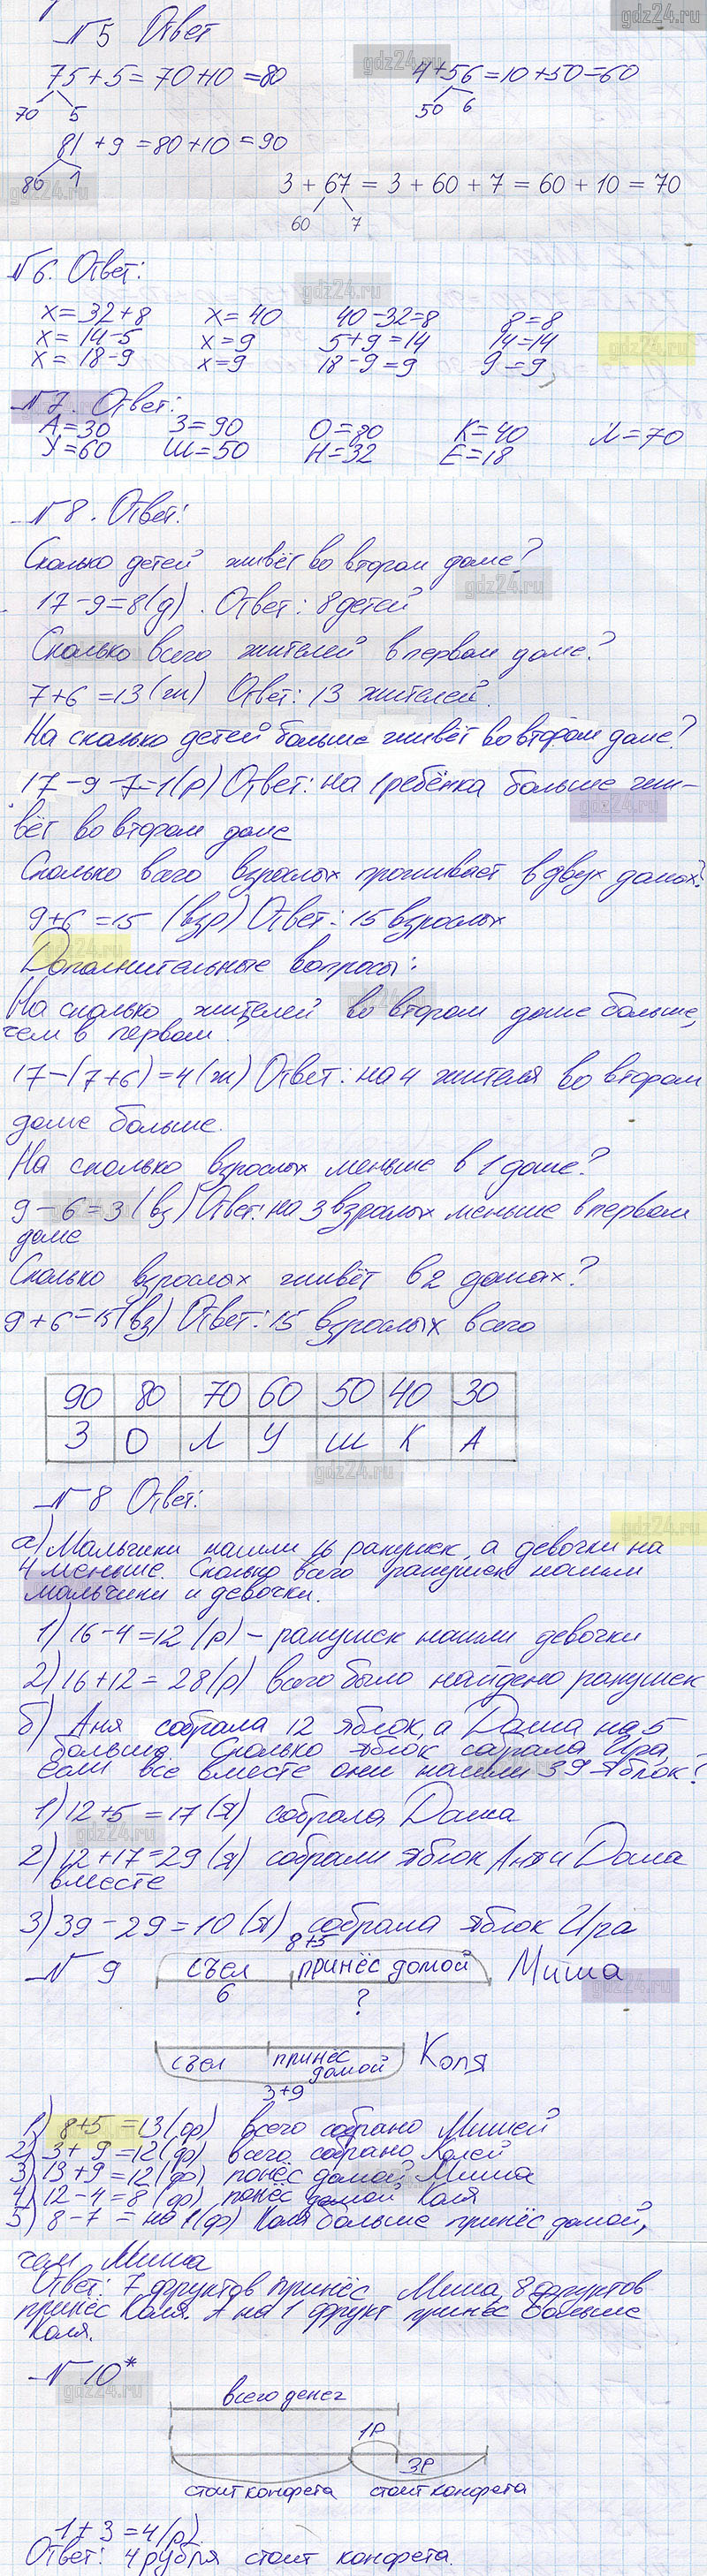 №5 Ответ
75+5=70+10=80 4+56=10+50=60
70 5 50 6
81+9=80+10=90
80 1
3+67=3+60+7=60+10=70
60 7
№6. Ответ:
x=32+8 x=40 40-32=8 8=8
x=14-5 x=9 5+9=14 14=14
x=18-9 x=9 18-9=9 9=9
№7. Ответ:
А=30 З=90 О=80 К=40 Л=70
У=60 Ш=50 Н=32 Е=18
№8. Ответ:
Сколько детей живёт во втором доме?
17-9=8(д). Ответ: 8 детей
Сколько всего жителей в первом доме?
7+6=13(ж) Ответ: 13 жителей.
На сколько детей больше живёт во втором доме?
17-9-7=1(р) Ответ: на 1 ребёнка больше жи-
вёт во втором доме
Сколько всего взрослых проживает в двух домах?
9+6=15 (взр) Ответ: 15 взрослых
Дополнительные вопросы:
На сколько жителей во втором доме больше,
чем в первом?
17-(7+6)=4(ж) Ответ: на 4 жителя во втором
доме больше.
На сколько взрослых меньше в 1 доме?
9-6=3(вз) Ответ: на 3 взрослых меньше в первом
доме
Сколько взрослох живёт в 2 домах?
9+6=15(вз) Ответ: 15 взрослых всего
90 80 70 60 50 40 30
З О Л У Ш К А
№8 Ответ:
а) Мальчики нашли 16 ракушек, а девочки на
4 меньше. Сколько всего ракушек нашли
мальчики и девочки.
1) 16-4=12(р) - ракушек нашли девочки
2) 16+12=28(р) всего было найдено ракушек
б) Аня собрала 12 яблок, а Даша на 5
больше. Сколько яблок собрала Ира,
если все вместе они нашли 39 яблок?
1) 12+5=17(я) собрала Даша
2) 12+17=29(я) собрали яблок Аня и Даша
вместе
3) 39-29=10(я) собрала яблок Ира
8+5
№9 съел принёс домой Миша
6 ?
съел принёс домой Коля
3+9
1) 8+5=13(ф) всего собрано Мишей
2) 3+9=12(ф) всего собрано Колей
3) 13+9=12(ф) понёс домой Миша
4) 12-4=8(ф) понёс домой Коля
5) 8-7=на 1(ф) Коля больше принёс домой,
чем Миша
Ответ: 7 фруктов принёс Миша, 8 фруктов
принёс Коля. 7 на 1 фрукт принёс больше
Коля.
№10*
всего денег
1р
3р
стоит конфета стоит конфета
1+3=4(р)
Ответ: 4 рубля стоит конфета.
gdz24.ru